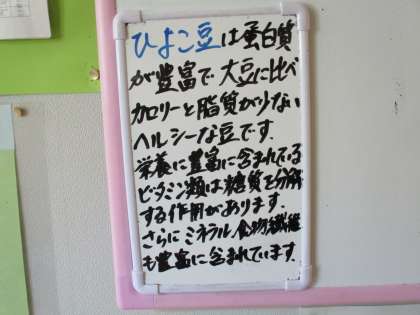 ひよこ豆は蛋白質
が豊富で大豆に比べ
カロリーと脂質が少ない
ヘルシーな豆です.
栄養に豊富に含まれている
ビタミン類は糖質を分解
する作用があります.
さらにミネラル食物繊維
も豊富に含まれています.